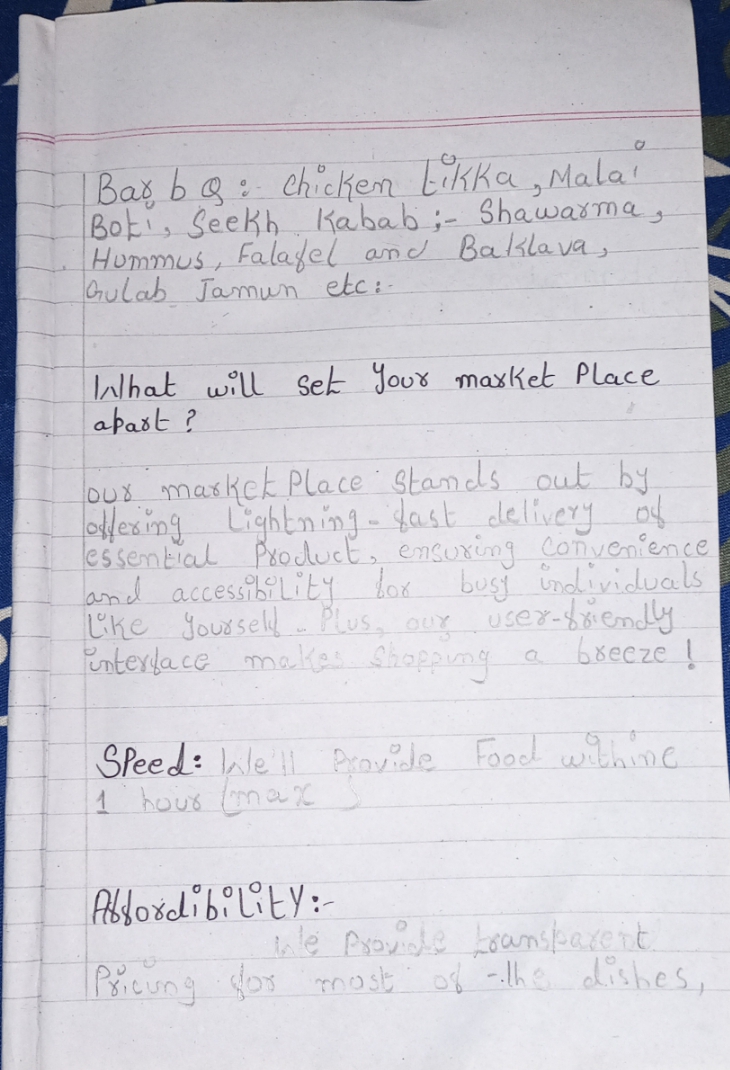 Bar b Q :- Chicken tikka, Malai
Boti, Seekh Kabab ;- Shawarma,
Hummus, Falafel and Baklava,
Gulab Jamun etc :-
What will set your market Place
apart ?
our market Place stands out by
offering Lightning-fast delivery of
essential Product, ensuring convenience
and accessibility for busy individuals
like yourself. Plus, our user-friendly
interface makes shopping a breeze !
Speed: We'll Provide Food withine
1 hour (max)
Affordibility :-
We Provide transparent
Pricing for most of the dishes,